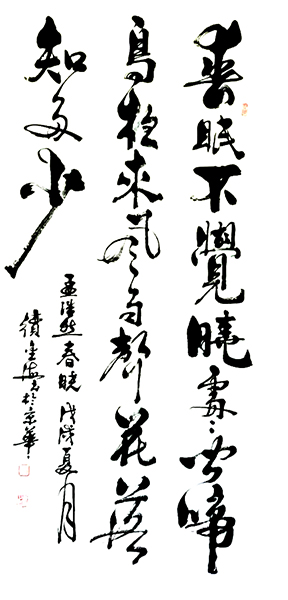 春眠不覺曉處〻聞啼
鳥夜來風雨聲花落
知多少
孟浩然春曉 戊戌夏月
金海書於京華